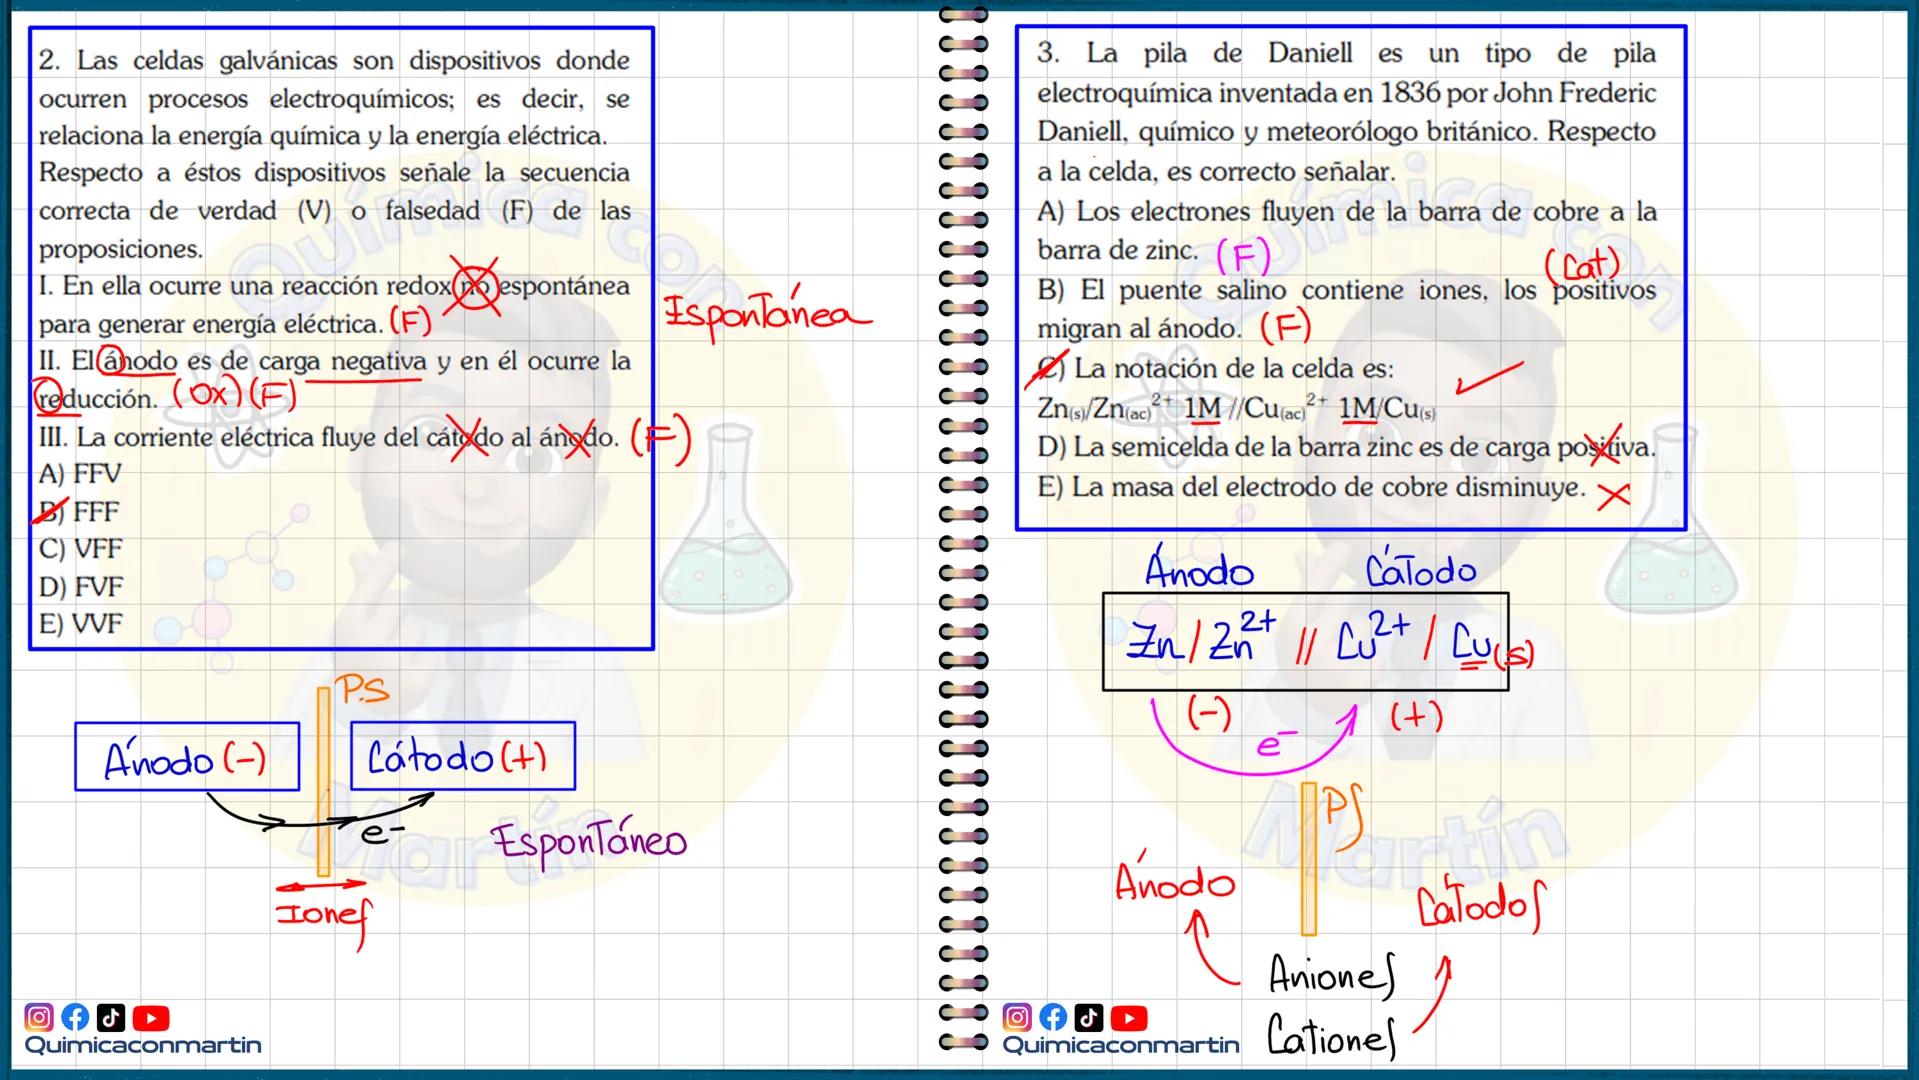 2. Las celdas galvánicas son dispositivos donde
ocurren procesos electroquímicos; es decir, se
relaciona la energía química y la energía eléctrica.
Respecto a éstos dispositivos señale la secuencia
correcta de verdad (V) o falsedad (F) de las
proposiciones.
I. En ella ocurre una reacción redox no espontánea
para generar energía eléctrica. (F)
Espontánea
II. El ánodo es de carga negativa y en él ocurre la
reducción. (Ox) (F)
III. La corriente eléctrica fluye del cátodo al ánodo. (F)
A) FFV
B) FFF
C) VFF
D) FVF
E) VVF
P.S
Ánodo (-)
Cátodo (+)
e-
Espontáneo
Iones
Química con
Martín
Quimicaconmartin
3. La pila de Daniell es un tipo de pila
electroquímica inventada en 1836 por John Frederic
Daniell, químico y meteorólogo británico. Respecto
a la celda, es correcto señalar.
A) Los electrones fluyen de la barra de cobre a la
barra de zinc. (F)
(Cat)
B) El puente salino contiene iones, los positivos
migran al ánodo. (F)
C) La notación de la celda es:
Zn(s)/Zn(ac)²⁺ 1M //Cu(ac)²⁺ 1M/Cu(s)
D) La semicelda de la barra zinc es de carga positiva.
E) La masa del electrodo de cobre disminuye.
Ánodo Cátodo
Zn / Zn²⁺ // Cu²⁺ / Cu(s)
(-) (+)
e-
PS
Ánodo
Cátodos
Aniones
Cationes
Química con
Martín
Quimicaconmartin